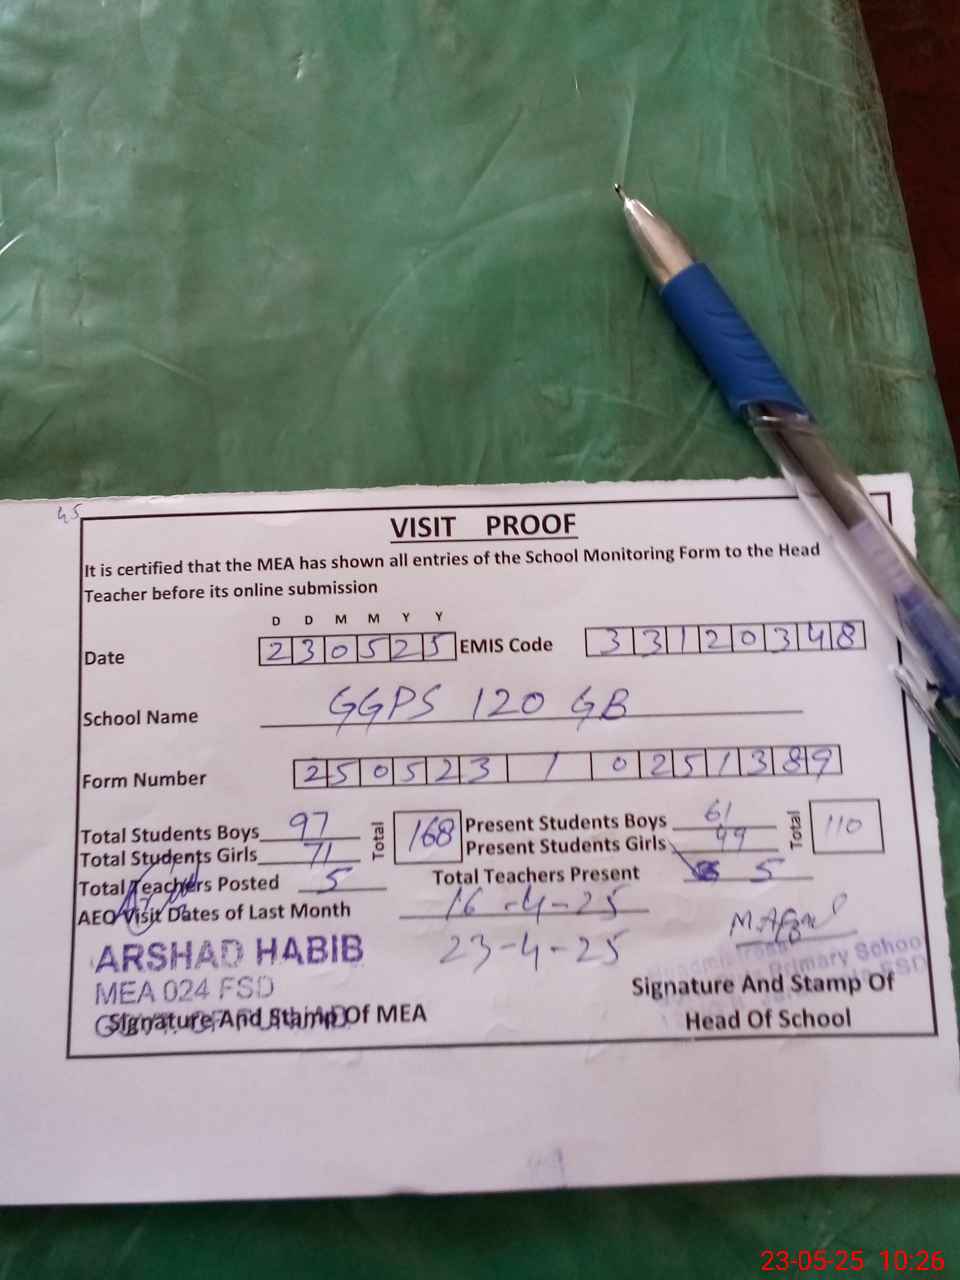 45
VISIT PROOF
It is certified that the MEA has shown all entries of the School Monitoring Form to the Head
Teacher before its online submission
D D M M Y Y
Date 230525 EMIS Code 33120348
School Name GGPS 120 GB
Form Number 250523 1 0251389
Total Students Boys 97 Total 168 Present Students Boys 61 Total 110
Total Students Girls 71 Present Students Girls 49
Total Teachers Posted 5 Total Teachers Present 5
AEO Visit Dates of Last Month 16-4-25
23-4-25
ARSHAD HABIB
MEA 024 FSD
Primary School
FSD
Signature And Stamp Of MEA
Signature And Stamp Of
Head Of School
23-05-25 10:26